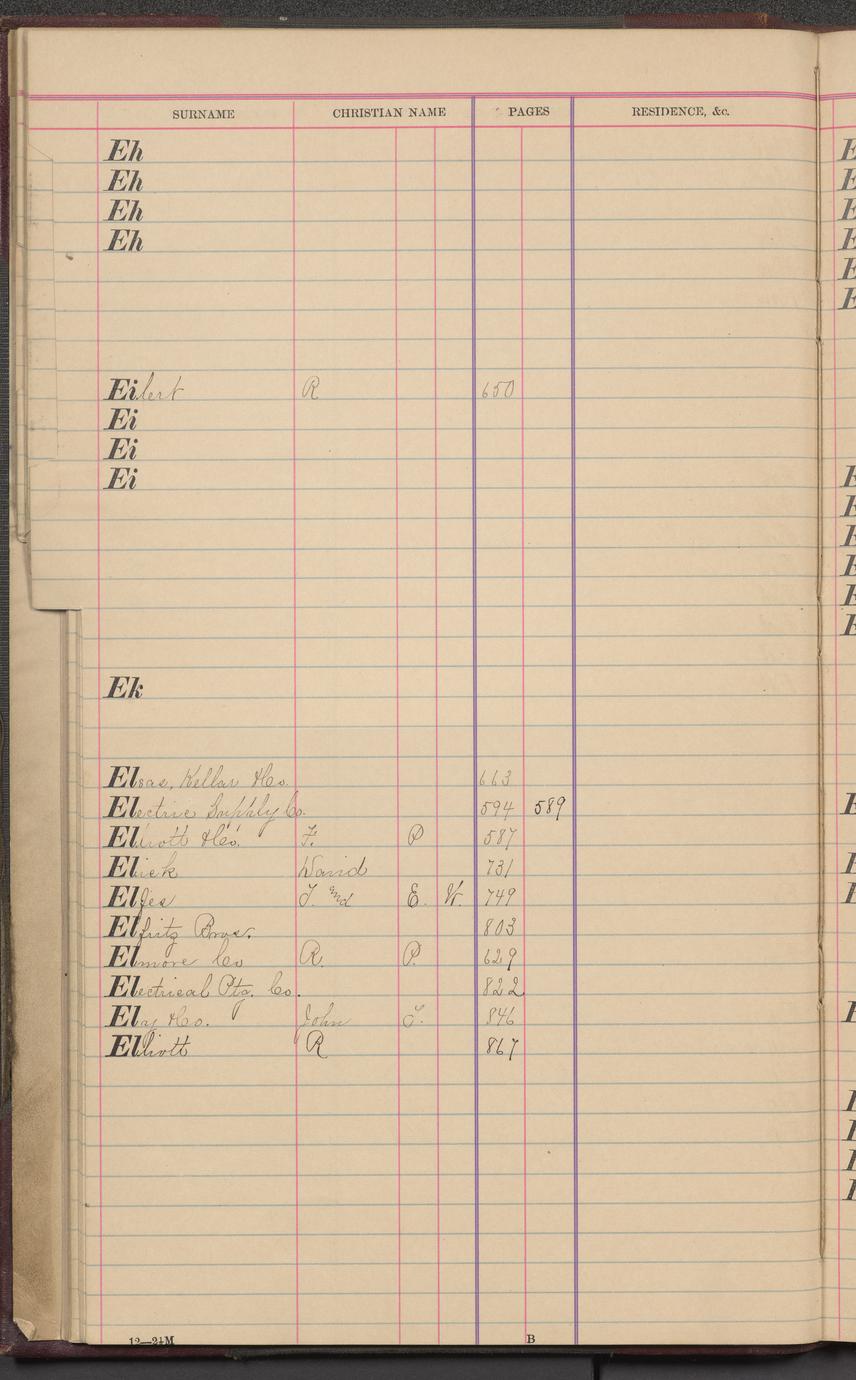 SURNAME CHRISTIAN NAME PAGES RESIDENCE, &c.
Eh
Eh
Eh
Eh
Eilert R 650
Ei
Ei
Ei
Ek
Elsas, Kellar &Co. 663
Electric Supply Co. 594 589
Elliott &Co. F. P 587
Elick David 731
Elges J. and E. W. 749
Elfritz Bros. 803
Elmore Co R. P. 629
Electrical Ptg. Co. 822
Elay &Co. John J. 846
Elliott R 867
12—2½M B